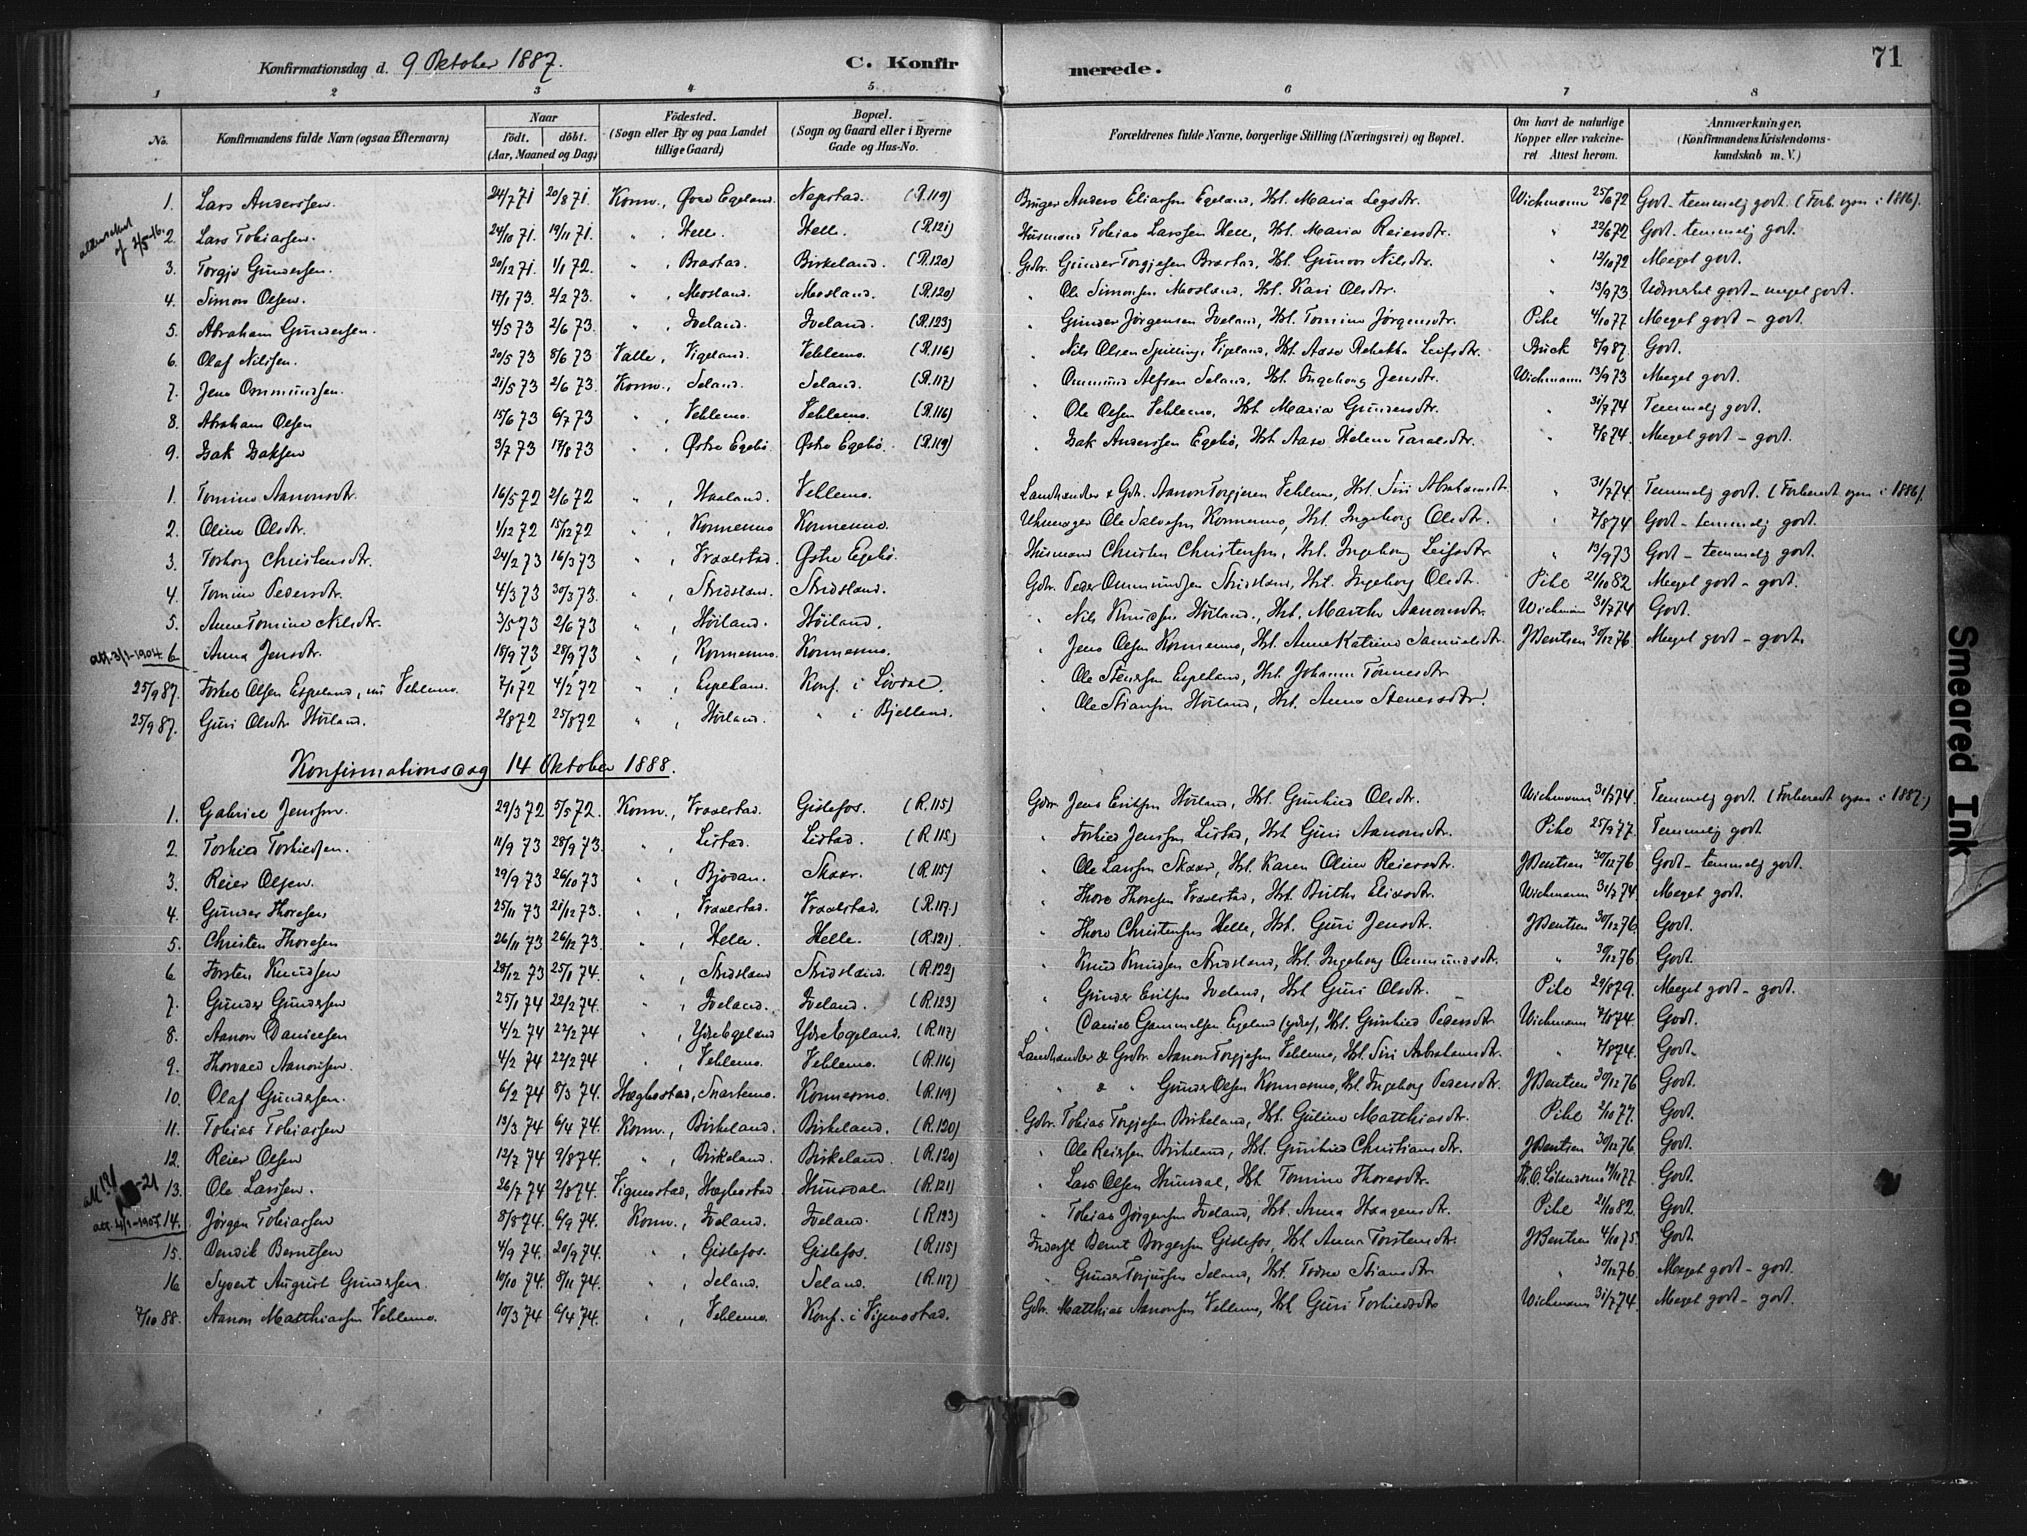 Konfirmationsdag d. 9 Oktober 1887. C. Konfirmerede. 71
1 2 3 4 5 6 7 8
No. Konfirmandens fulde Navn (ogsaa Efternavn) Naar født. døbt. (Aar, Maaned og Dag) Fødested. (Sogn eller By og paa Landet tillige Gaard.) Bopæl. (Sogn og Gaard eller i Byerne Gade og Hus-No. Forældrenes fulde Navne, borgerlige Stilling (Næringsvei) og Bopæl. Om havt de naturlige Kopper eller vakcineret Attest herom. Anmærkninger. (Konfirmandens Kristendomskundskab m. V.)
1. Lars Anderssen. 24/7 71 20/8 71. Konm., Øvre Egeland. Napstad. (R.119) Bruger Anders Eliassen Egeland, Hst. Maria Legsdtr. Wichmann 25/6 72 Godt. temmelig godt. (Forb. ogsn i 1886).
2. Lars Tobiassen. 24/10 71. 19/11 71. " , Helle. Helle. (R.121) Husmand Tobias Larssen Helle, Hst. Maria Reiersdtr. " 22/6 72 Godt. temmelig godt.
3. Torgje Gundersen. 20/12 71. 1/1 72. " , Brastad. Birkeland. (R.120) Grdbr. Gunder Torgjesen Brastad, Hst. Gunvor Nilsdtr. " 12/10 72 Meget godt.
4. Simon Olsen. 17/1 73. 2/2 73. " , Mosland. Mosland. (R.120) " Ole Simonsen Mosland, Hst. Kari Olsdtr. " 13/9 73 Udmærket godt - meget godt.
5. Abraham Gundersen. 4/5 73 2/6 73. " , Iveland. Iveland. (R.123) " Gunder Jørgensen Iveland, Hst. Tomine Jørgensdtr. Pihl 4/10 77 Meget godt - godt.
6. Olaf Nilssen. 20/5 73 8/6 73 Valle, Vigeland. Vehlemo. (R.116) " Nils Olsen Spilling, Vigeland, Hst. Aase Rebekka Leifsdtr. Buck 8/9 87. Godt.
7. Jens Ommundsen. 21/5 73 2/6 73. Konm., Seland. Seland. (R.117) " Ommund Alfsen Seland, Hst. Ingeborg Jensdtr. Wichmann 13/9 73 Meget godt.
8. Abraham Olsen 15/6 73 6/7 73 " , Vehlemo. Vehlemo. (R.116) " Ole Olsen Vehlemo, Hst. Maria Gundersdtr. " 31/7 74 Temmelig godt.
9. Isak Isaksen 3/7 73 17/8 73 " , Østre Egebø. Østre Egebø. (R.119) " Isak Anderssen Egebø, Hst. Aase Helene Taraldsdtr. " 7/8 74. Meget godt - godt.
1. Tomine Aanonsdtr. 16/5 72 2/6 72 " , Haaland. Vehlemo. Landhandler & Gdb. Aanon Torgjesen Vehlemo, Hst. Siri Abrahamsdtr. " 31/7 74. Temmelig godt. (Forberedt ogsn i 1886).
2. Oline Olsdtr. 1/12 72 15/12 72 " , Konnesmo Konnesmo. Uhrmager Ole Salvesen Konnesmo, Hst. Ingeborg Olsdtr. " 7/8 74 Godt - temmelig godt.
3. Torborg Christensdtr. 24/2 73 16/3 73 " , Vraalstad. Østre Egebø. Husmand Christen Christensen, Hst. Ingeborg Leifsdtr. " 13/9 73 Godt - temmelig godt.
4. Tomine Pedersdtr. 4/3 73 30/3 73. " , Stridsland. Stridsland. Gdbr. Peder Ommundsen Stridsland, Hst. Ingeborg Olsdtr. Pihl 21/10 82 Meget godt - godt.
5. Anne Tomine Nilsdtr. 3/5 73 2/6 73 " , Høiland. Høiland. " Nils Knudsen Høiland, Hst. Marthe Aanonsdtr. Wichmann 31/7 74 Godt.
att. 3/1-1904. 6 Anna Jensdtr. 18/9 73 28/9 73 " , Konnesmo. Konnesmo. " Jens Olsen Konnesmo, Hst. Anne Katrine Samuelsdtr. J Bentsen 30/12 76. Meget godt - godt.
25/9 87. Torkel Olsen Espeland, nu Vehlemo. 7/1 72 4/2 72 " , Espeland. Konf. i Løvdal. " Ole Stenssen Espeland, Hst. Johanne Tønnesdtr
25/9 87. Guri Olsdtr Høiland. 2/8 72 25/8 72 " , Høiland. " i Bjelland. " Ole Stiansen Høiland, Hst. Anna Stenersdtr.
Konfirmationsdag 14 Oktober 1888.
1. Gabriel Jenssen. 29/3 72 5/5 72. Konm., Vraalstad. Gislefos. (R.115) Gdbr. Jens Eriksen Høiland, Hst. Gunhild Olsdtr. Wichmann 31/7 74. Temmelig godt. (Forberedt ogsn i 1887.)
2. Torkild Torkildsen. 11/9 73 28/9 73. " , Listad. Listad. (R.115) " Torkild Jenssen Listad, Hst. Guri Aanonsdtr. Pihl 25/9 77. Temmelig godt
3. Reier Olsen. 29/9 73 26/10 73 " , Bjodan. Skaar. (R.115) " Ole Larssen Skaar, Hst. Karen Oline Reiersdtr. J Bentsen 30/12 76 Godt - temmelig godt.
4. Gunder Thoresen 25/11 73 21/12 73. " , Vraalstad. Vraalstad. (R.117.) " Thore Thoresen Vraalstad, Hst. Birthe Eliasdtr. Wichmann 31/7 74. Meget godt.
5. Christen Thoresen 26/11 73 26/12 73. " , Helle. Helle. (R.121). " Thore Christensen Helle, Hst. Guri Jensdtr. J Bentsen 30/12 76. Godt.
6 Torsten Knudsen 28/12 73 25/1 74. " , Stridsland Stridsland. (R.122) " Knud Knudsen Stridsland, Hst. Ingeborg Ommundsdtr. " 30/12 76 Godt.
7. Gunder Gundersen 25/1 74 22/2 74. " , Iveland. Iveland. (R.123) " Gunder Eriksen Iveland, Hst Guri Olsdtr. Pihl 29/8 79. Meget godt - godt.
8. Aanon Danielsen 4/2 74 22/2 74 " , Ydre Egeland Ydre Egeland. (R.117) " Daniel Gammelsen Egeland (ydre), Hst. Gunhild Pedersdtr. Wichmann 7/8 74. Godt.
9. Thorvald Aanonsen. 4/2 74 22/2 74 " , Vehlemo. Vehlemo. (R.116) Landhandler & Grdbr. Aanon Torgjesen Vehlemo, Hst Siri Abrahamsdtr. " 7/8 74. Godt.
10. Olaf Gundersen. 6/2 74 8/3 74. Hægbostad, Snartemo. Konnesmo. (R.119) " & " Gunder Olsen Konnesmo, Hst Ingeborg Pedersdtr. J Bentsen 30/12 76 Godt.
11. Tobias Tobiassen 13/3 74 6/4 74. Konm., Birkeland. Birkeland. (R.120) Gdbr. Tobias Torgjesen Birkeland, Hst. Guline Matthiasdtr. Pihl 2/10 77. Godt.
12. Reier Olsen 12/7 74 9/8 74. " , Birkeland. Birkeland. (R.120) " Ole Reiersen Birkeland, Hst. Gunhild Christiansdtr. J Bentsen 30/12 76. Godt.
13. Ole Larssen. 26/7 74 2/8 74. Vigmostad, Hægbostad Hunsdal. (R.121) " Lars Olsen Hunsdal, Hst. Tomine Thoresdtr. 17/11 77. Godt
att. 4/1-1907. 14. Jørgen Tobiassen 8/8 74. 6/9 74. Konm., Iveland. Iveland. (R.123) " Tobias Jørgensen Iveland, Hst. Anna Haagensdtr. Pihl 21/10 82. Godt.
15. Bendik Berntsen 4/9 74. 20/9 74. " , Gislefos. Gislefos. (R.115) Inderst Bernt Børgesen Gislefos, Hst Anne Torstensdtr. J Bentsen 4/10 75. Godt.
16 Syvert August Gundersen. 10/10 74. 8/11 74. " , Seland. Seland. (R.117) " Gunder Torjusen Seland, Hst. Todne Stiansdtr. " 30/12 76. Meget godt - godt.
7/10 88. Aanon Matthiassen Vehlemo. 10/3 74 6/4 74. " , Vehlemo. Konf. i Vigmostad. Gdbr. Matthias Aanonsen Vehlemo, Hst Guri Torkildsdtr Wichmann 31/7 74. Meget godt - godt.
Smeared Ink